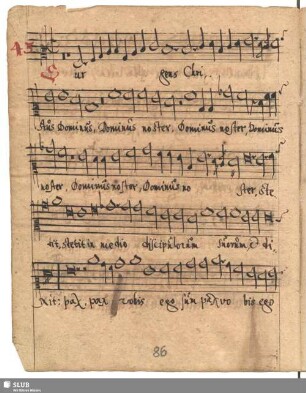 Sur gens Chri,
stus Dominus, Dominus noster, Dominus noster, Dominus
noster, Dominus noster, Dominus no ster, ste
tit, stetit in medio discipulorum suorum, et di
xit: pax, pax vobis ego sum pax vo bis ego
86
SLUB